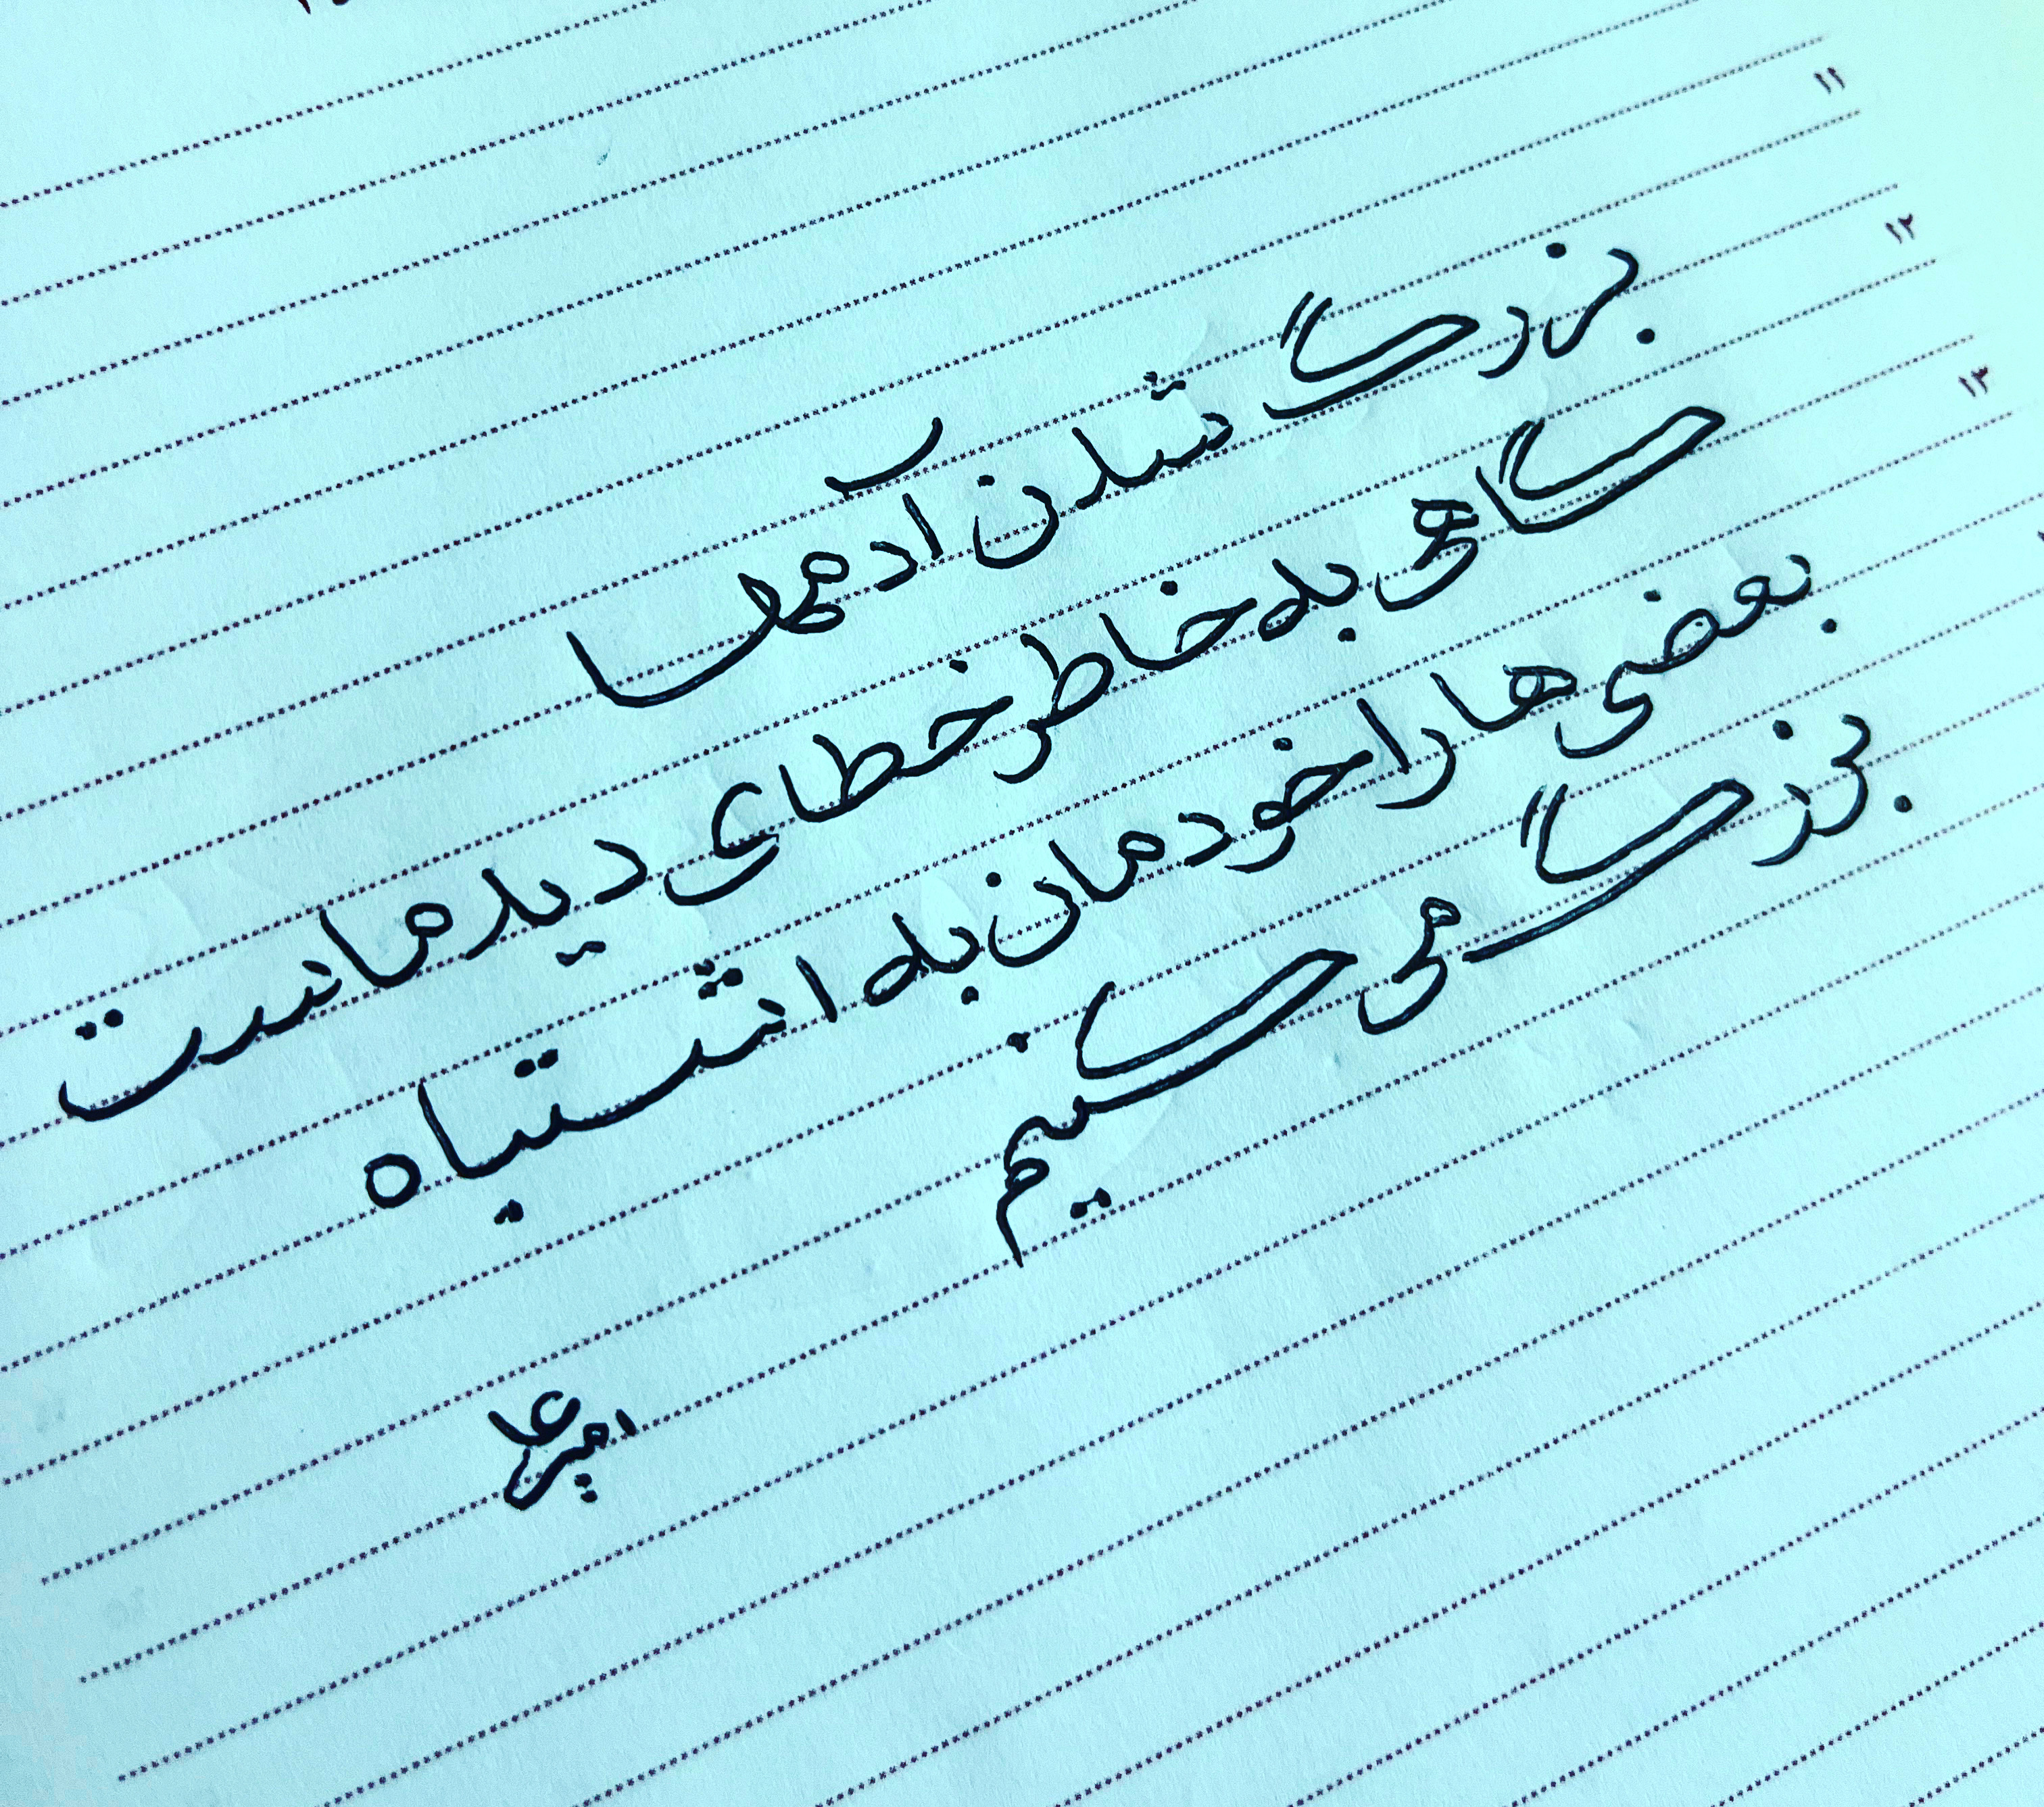 ۱۱
۱۲
۱۳
بزرگ شدن آدمها
گاهی به خاطر خطای دید ماست
بعضی ها را خودمان به اشتباه
بزرگ می کنیم
امیرعلی